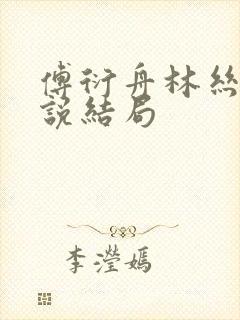 傅衍舟林絲
說結局
李瀅嫣